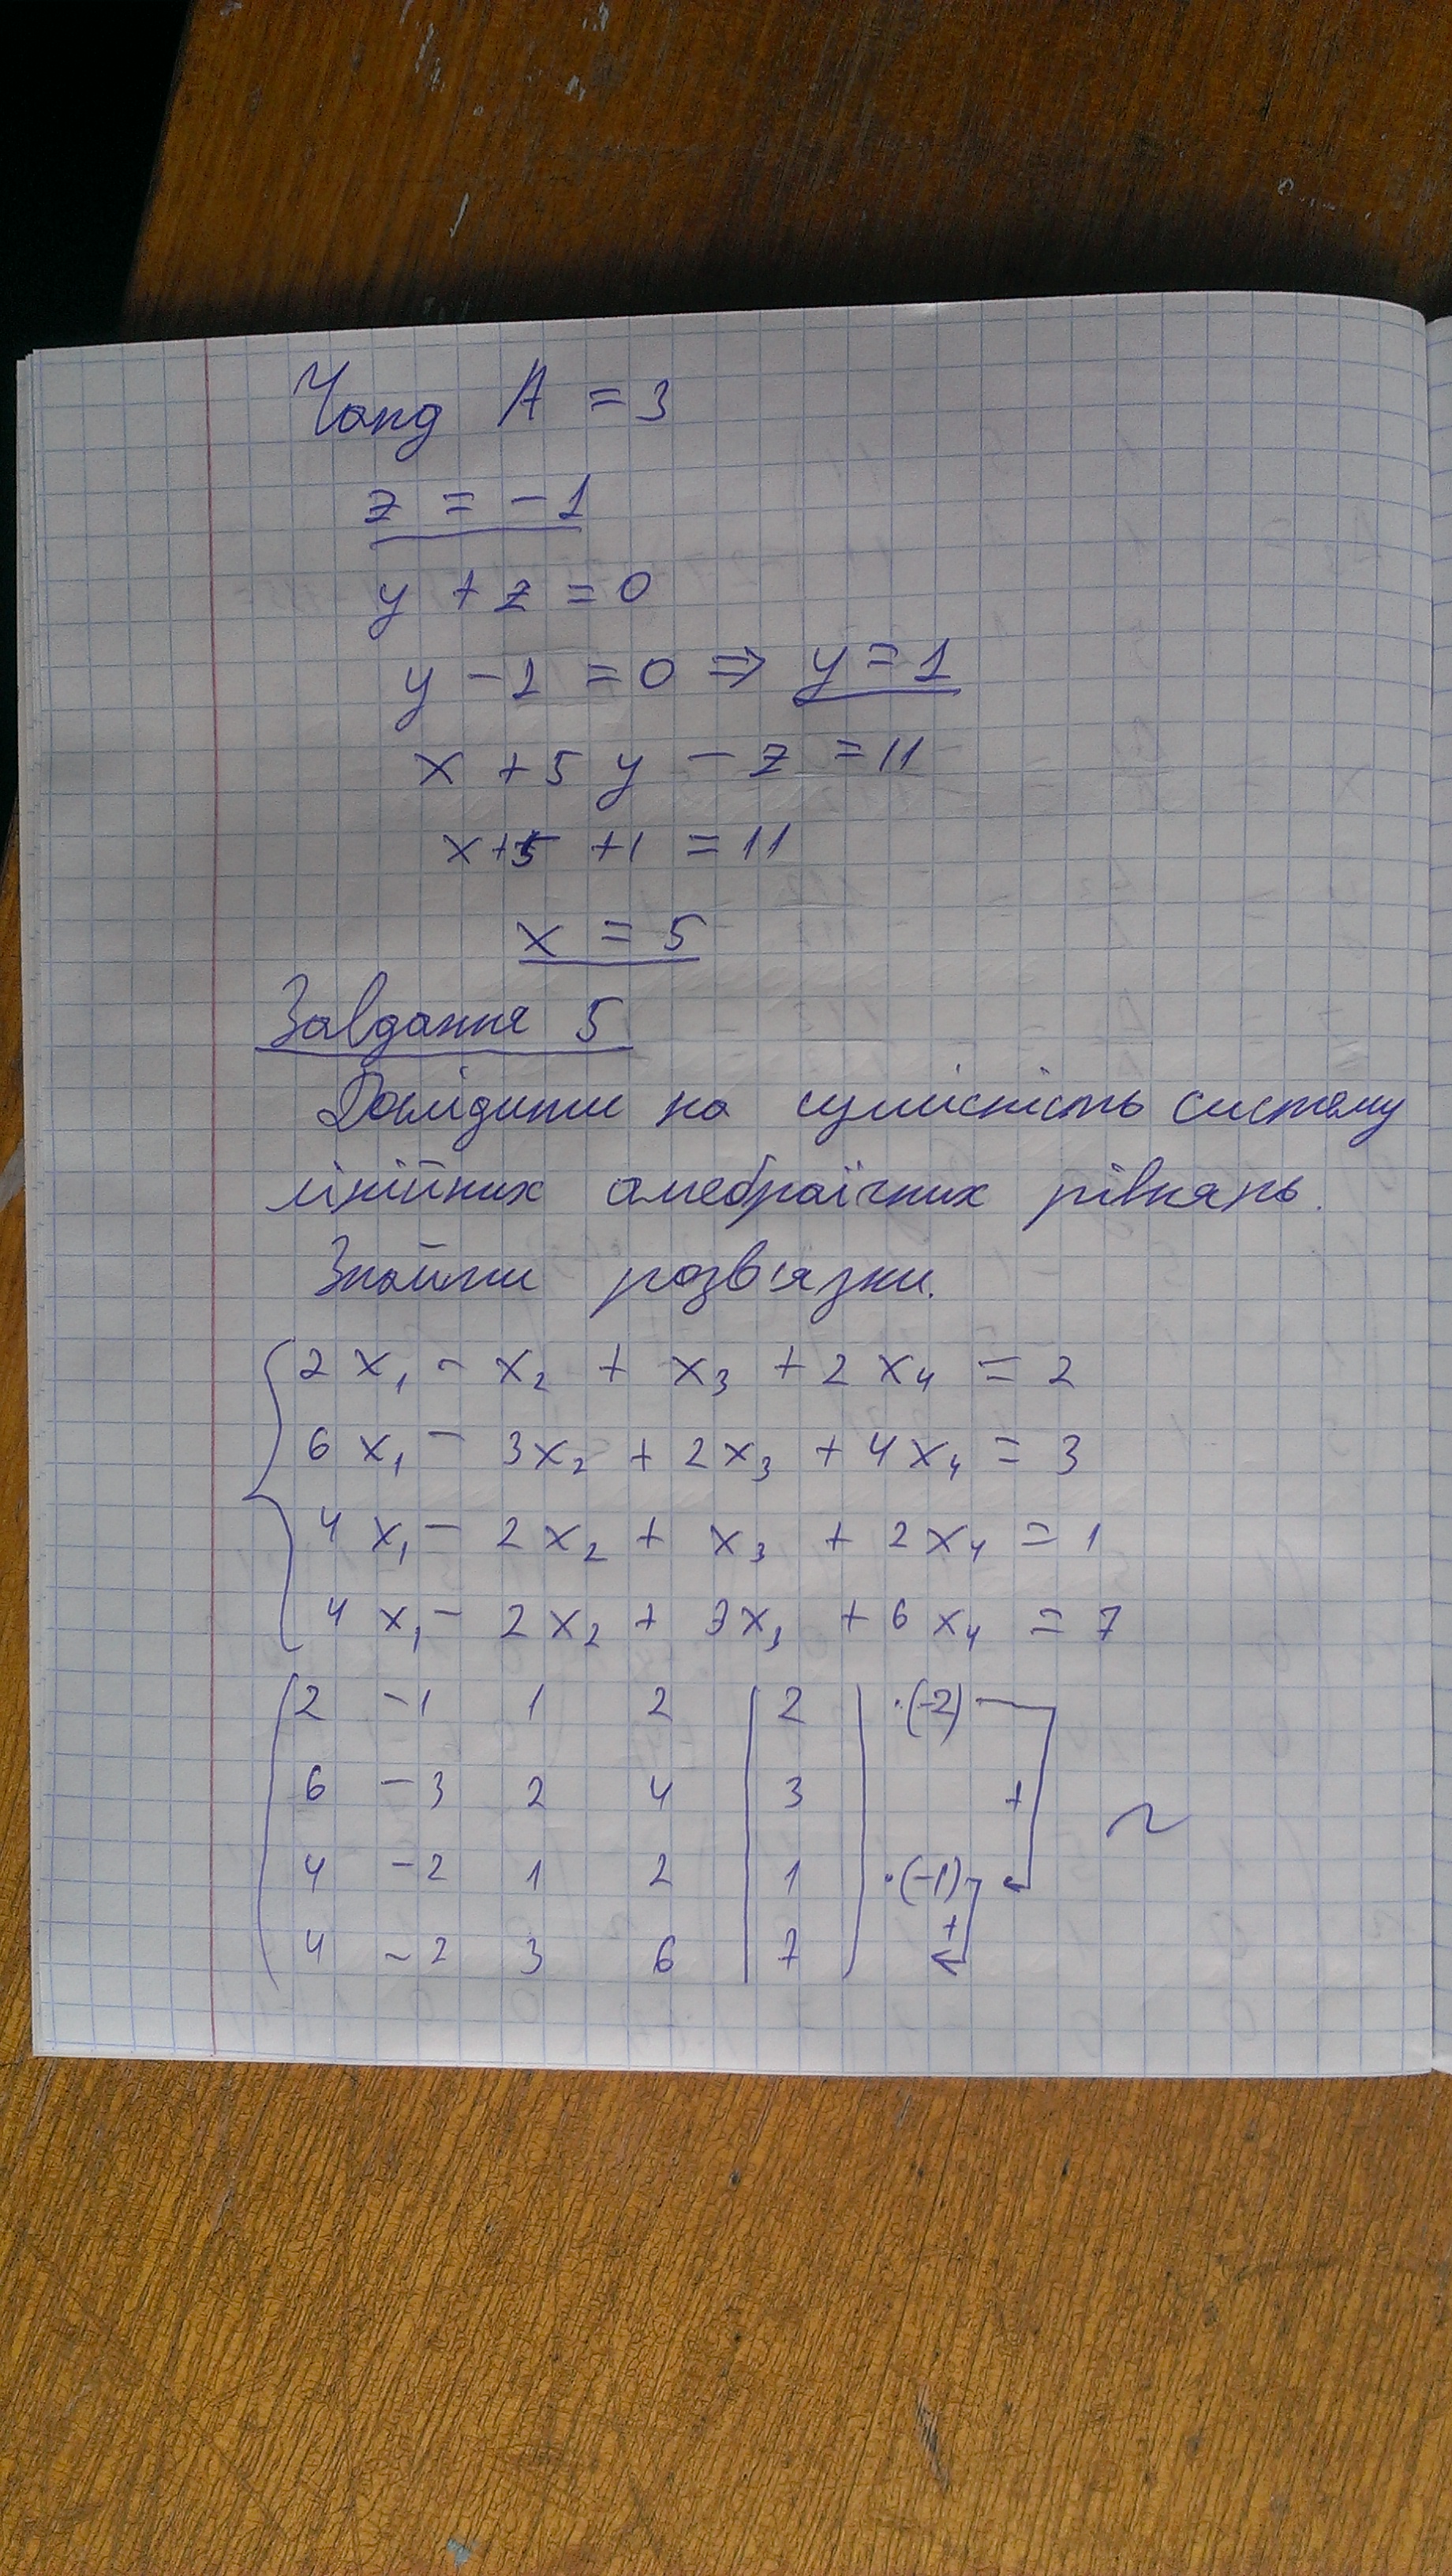 rang A = 3
z = -1
y + z = 0
y - 1 = 0 ⇒ y = 1
x + 5y - z = 11
x + 5 + 1 = 11
x = 5
Завдання 5
Дослідити на сумісність систему
лінійних алгебраїчних рівнянь.
Знайти розв'язки.
2x₁ - x₂ + x₃ + 2x₄ = 2
6x₁ - 3x₂ + 2x₃ + 4x₄ = 3
4x₁ - 2x₂ + x₃ + 2x₄ = 1
4x₁ - 2x₂ + 3x₃ + 6x₄ = 7
2 -1 1 2 | 2 ·(-2)
6 -3 2 4 | 3 + ~
4 -2 1 2 | 1 ·(-1)
+
4 -2 3 6 | 7